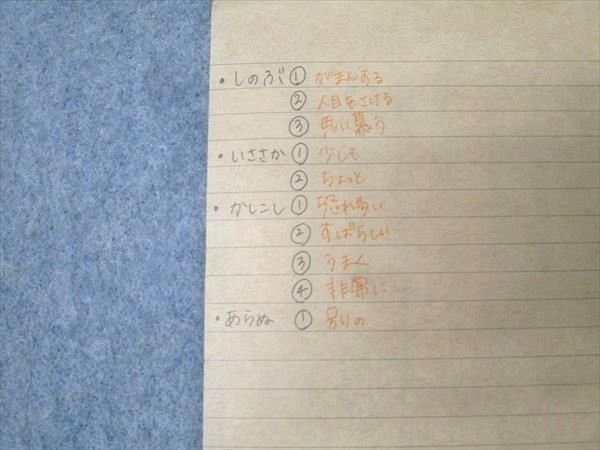 ・しのぶ ① がまんする
② 人目をさける
③ 思い慕う
・いささか ① 少しも
② ちょっと
・かしこし ① 恐れ多い
② すばらしい
③ うまく
④ 非常に
・あらぬ ① 別の